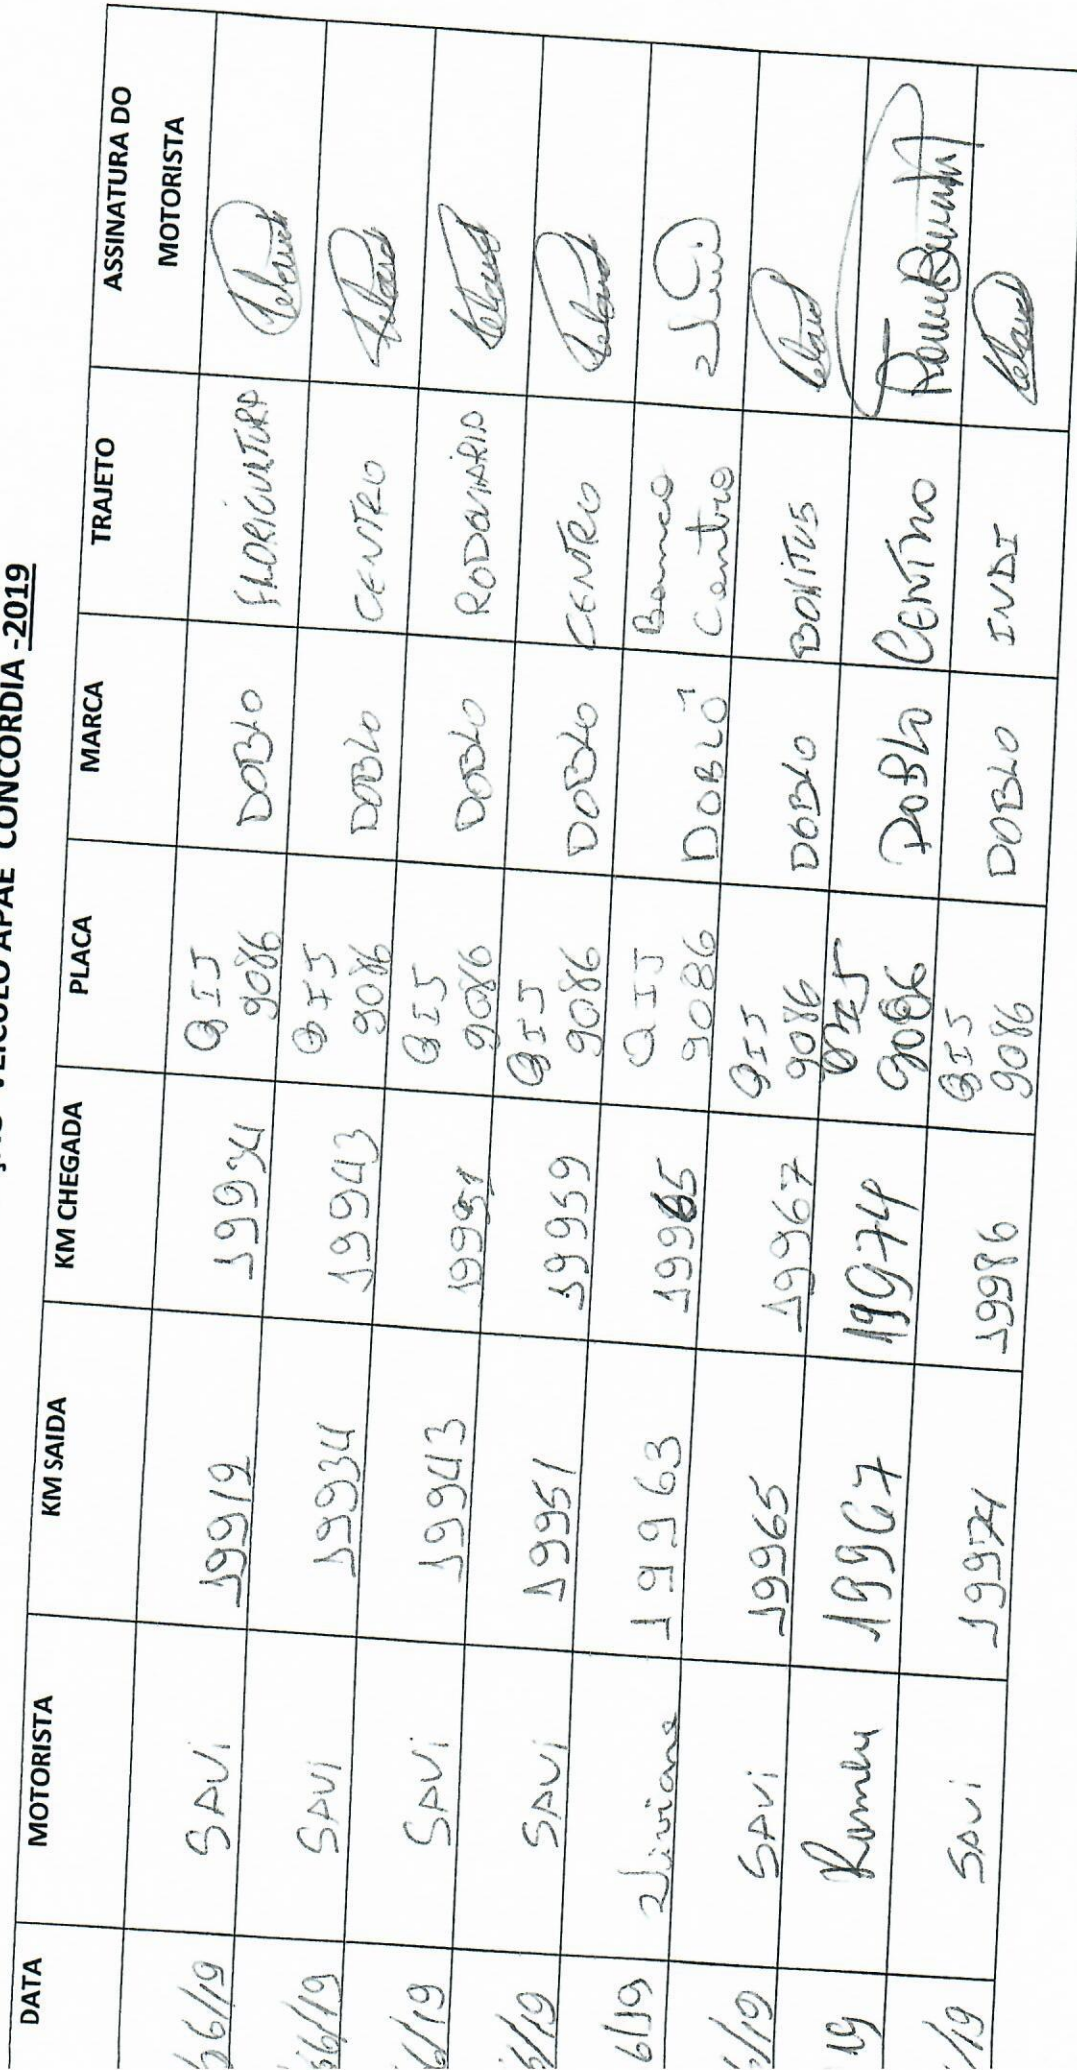 VEICULO APAE CONCORDIA -2019
DATA MOTORISTA KM SAIDA KM CHEGADA PLACA MARCA TRAJETO ASSINATURA DO
MOTORISTA
6/19 SAVI 19919 19934 QIJ 9086 DOBLO FLORICULTURA
6/19 SAVI 19934 19943 QIJ 9086 DOBLO CENTRO
6/19 SAVI 19943 19951 QIJ 9086 DOBLO RODOVIARIA
6/19 SAVI 19951 19959 QIJ 9086 DOBLO CENTRO
6/19 Viviane 19963 19965 QIJ 9086 DOBLO Banco
Centro
/19 SAVI 19965 19967 QIJ 9086 DOBLO
19 19967 19974 9086 DOBLO Centro
/19 SAVI 19974 19986 QIJ 9086 DOBLO INDI